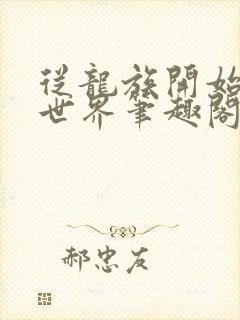 從龍族開始
世界筆趣閣
郝忠友